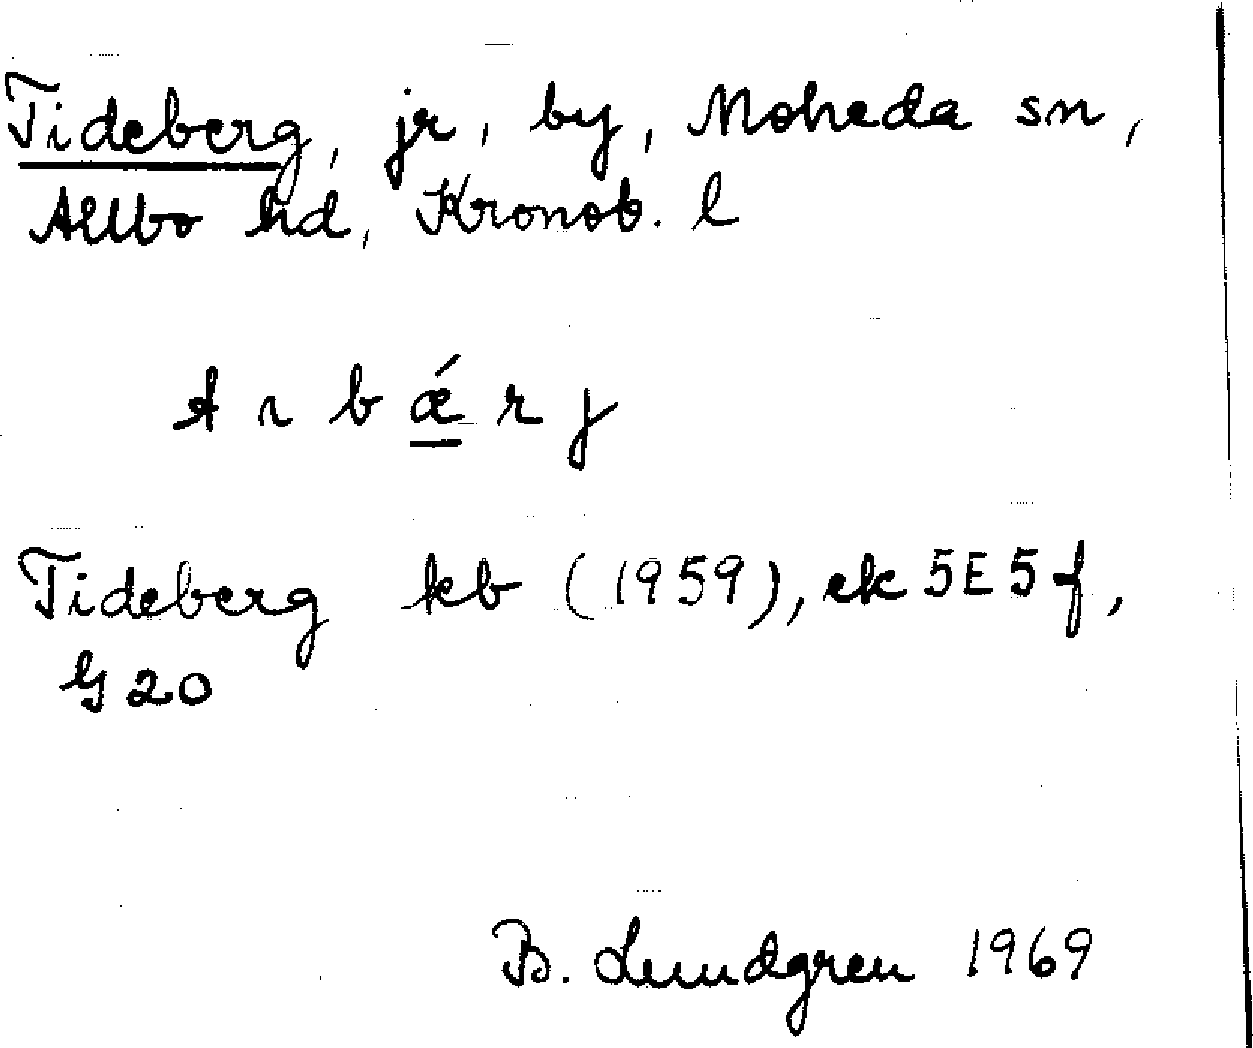 Tideberg, jr, by, Moheda sn,
Allbo hd, Kronob. l
Tideberg kb (1959), ek 5E5f,
G 20
B. Lundgren 1969